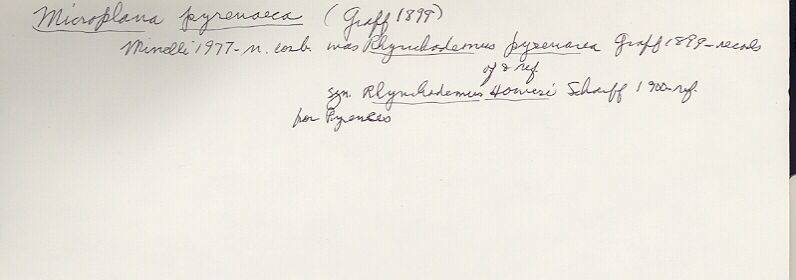 Microplana pyrenaeca (Graff 1899)
Minelli 1977 - n. comb. was Rhynchodemus pyrenaea Graff 1899 - records
of & ref.
syn. Rhynchodemus Howesi Scharff 1900 - ref.
for Pyrenees